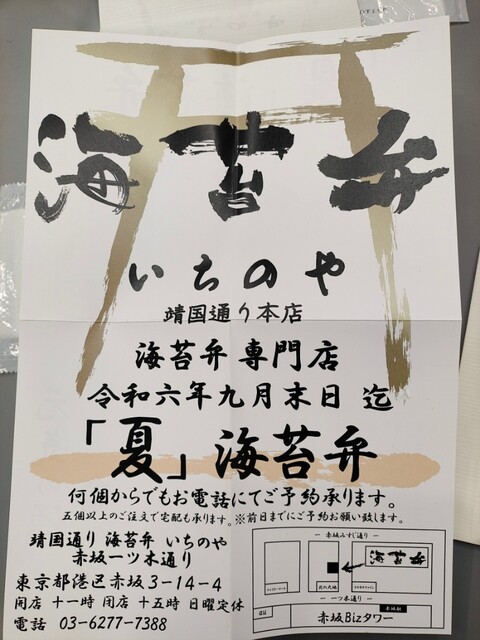 海苔弁
いちのや
靖国通り本店
海苔弁専門店
令和六年九月末日 迄
「夏」海苔弁
何個からでもお電話にてご予約承ります。
五個以上のご注文で宅配も承ります。※前日までにご予約お願い致します。
靖国通り 海苔弁 いちのや
赤坂一ツ木通り
東京都港区赤坂3-14-4
開店 十一時 閉店 十五時 日曜定休
電話 03-6277-7388
赤坂みすじ通り
海苔弁
一ツ木通り
赤坂駅
赤坂Bizタワー